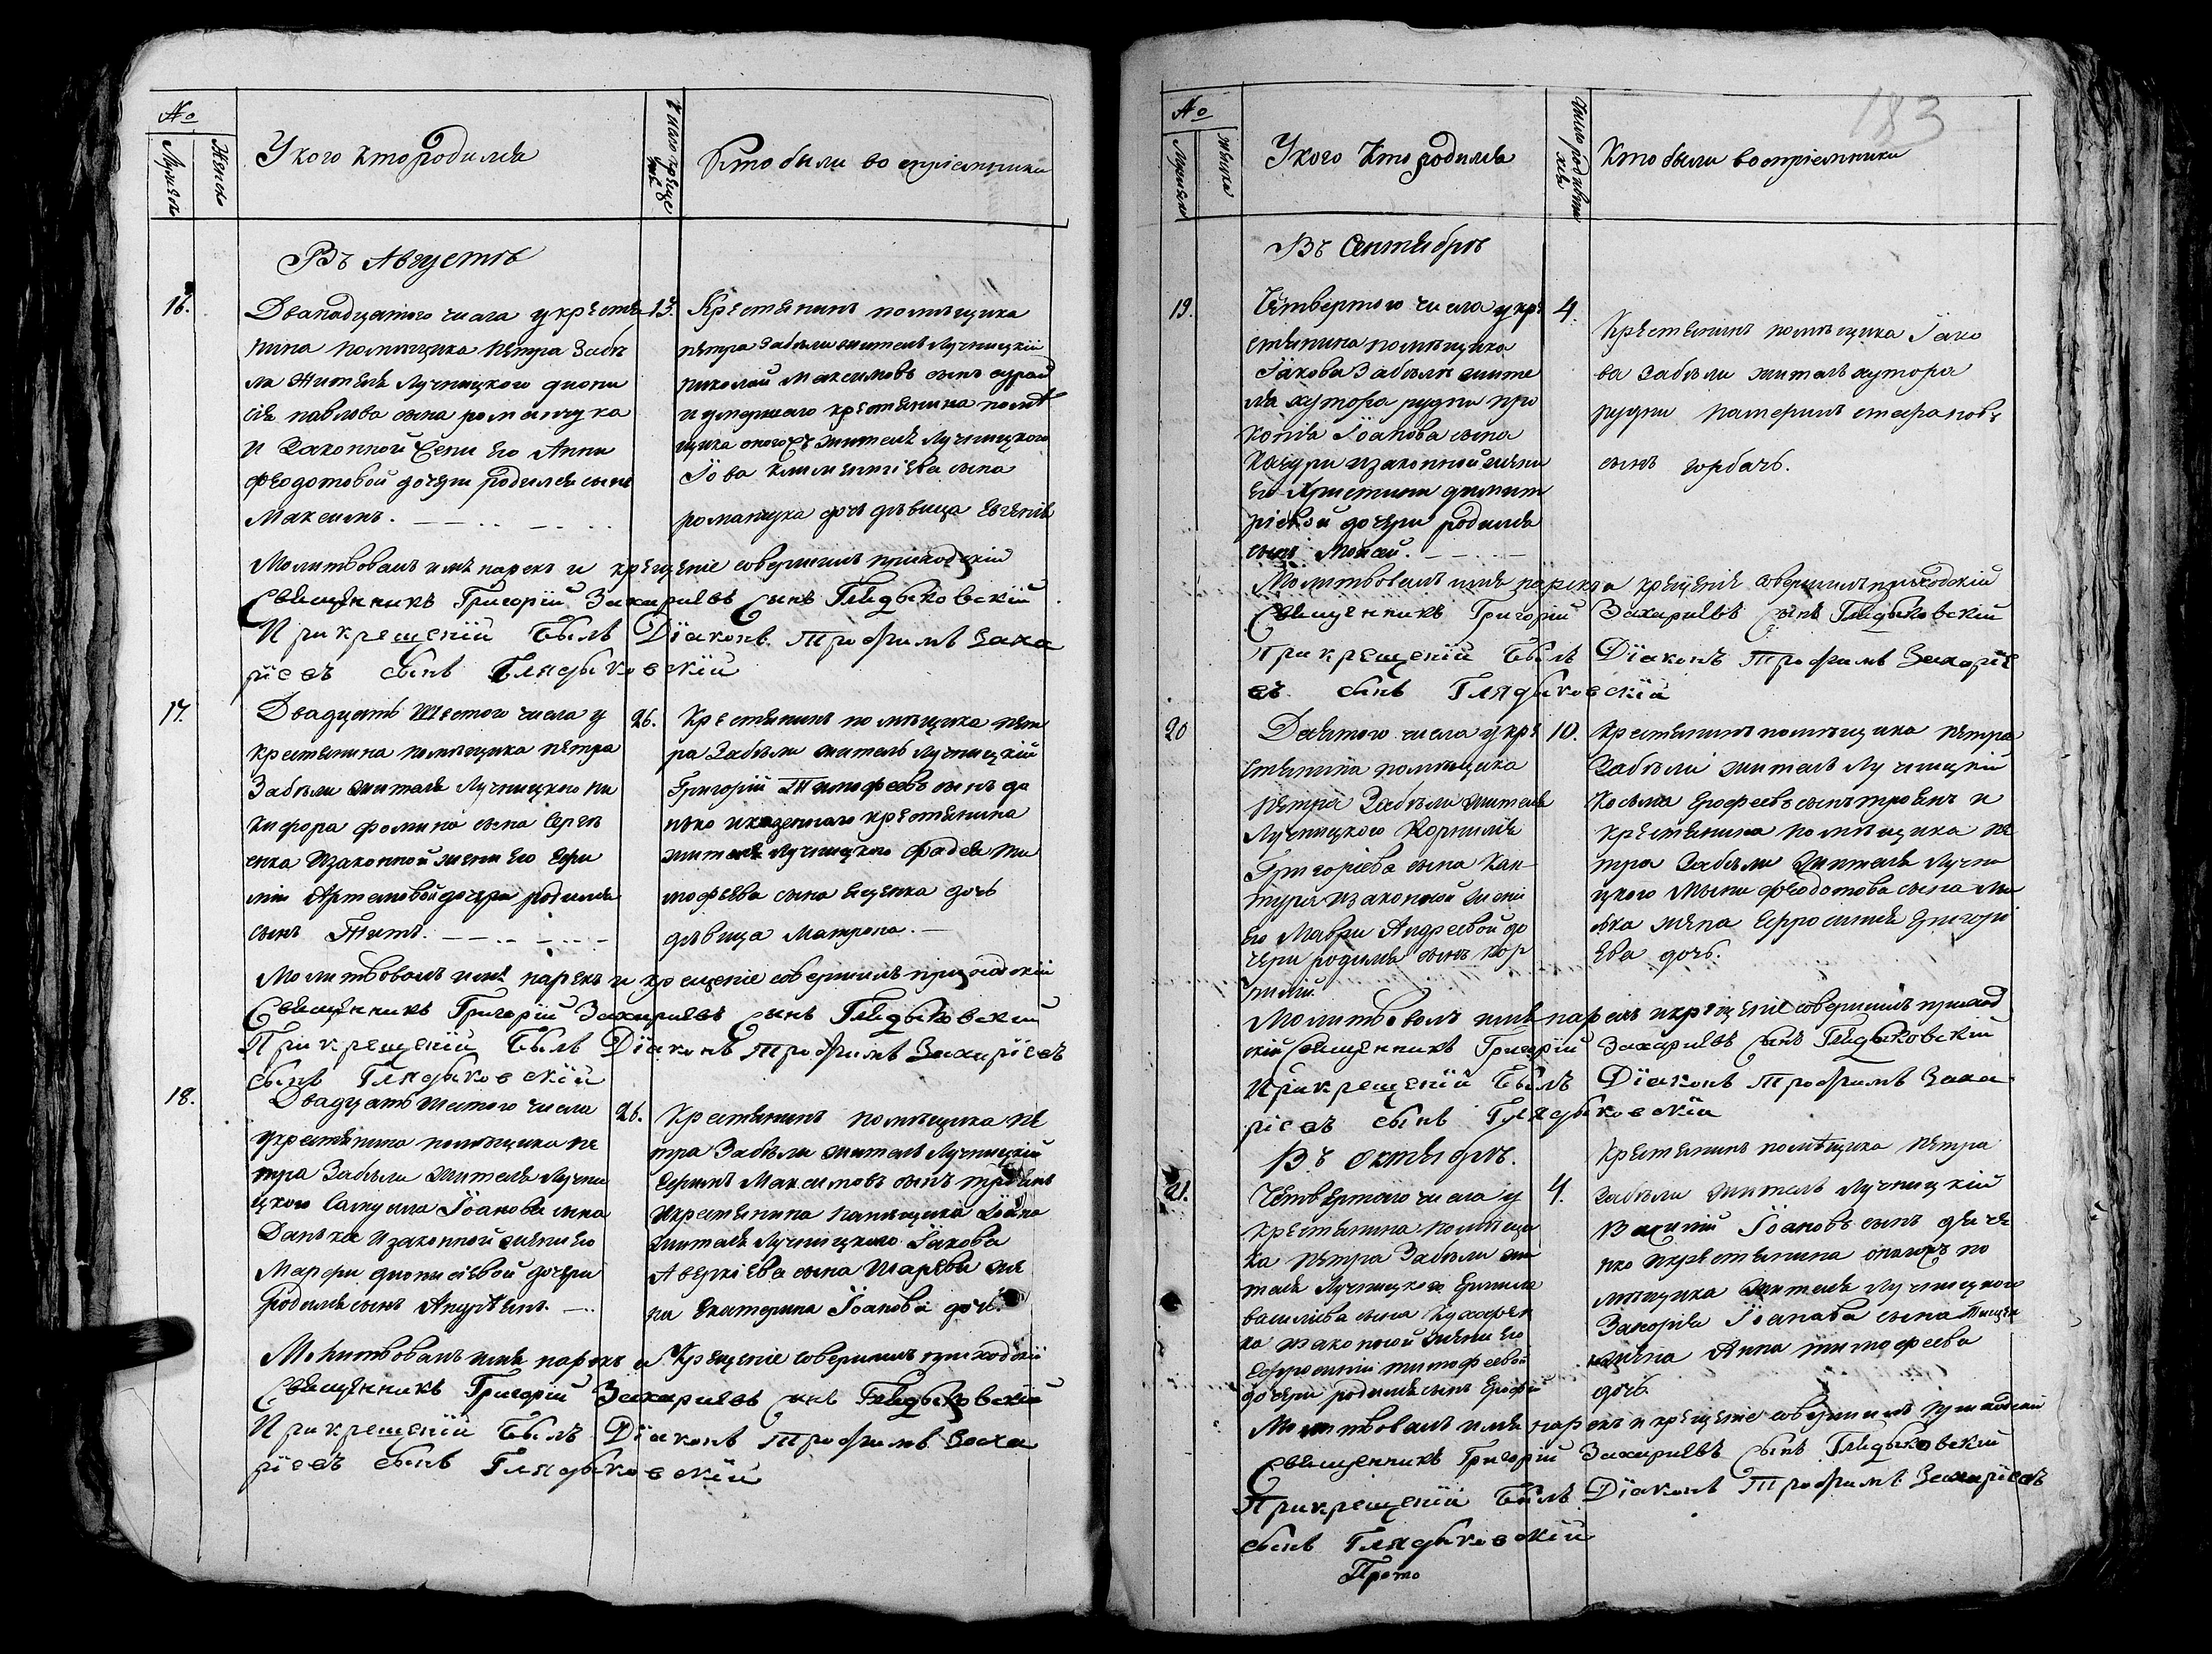 №
Мужеск
Женск
У кого кто родился
Число креще
ния
Кто были восприемники
Въ Августѣ
16.
Дванадцатого числа у крестя
нина помѣщика Петра Забѣ
лы жителя Лучницкого Диони
сія Павлова сына Романчука
и законной жены его Анны
Феодотовой дочери родился сынъ
Максимъ.
13.
Крестянинъ помѣщика
Петра Забѣлы житель Лучницкій
Николай Максимовъ сынъ
и умершаго крестянина помѣ
щика оногожъ жителя Лучницкого
Іова Климентіева сына
Романчука дочь дѣвица Евгенія
Молитвовалъ имя нарекъ и крещеніе совершилъ приходскій
Священникъ Григорій Захаріевъ Сынъ Глядыковскій
При крещеніи былъ Діаконъ Трофимъ Заха
ріевъ сынъ Глядыковскій
17.
Двадцять Шестого числа у
крестянина помѣщика Петра
Забѣлы жителя Лучницкого Ни
кифора Фомина сына Сереѣ
енка и законной жены его Ефи
міи Артемовой дочери родился
сынъ Титъ.
26.
Крестянинъ помѣщика Пет
ра Забѣлы житель Лучницкій
Григорій Тимофеевъ сынъ
и казенного крестянина
жителя Лучницкого Фадея Ти
мофѣева сына Ященка дочь
дѣвица Матрона.
Молитвовалъ имя нарекъ и крещеніе совершилъ приходскій
Священникъ Григорій Захаріевъ Сынъ Глядыковскій
При крещеніи былъ Діаконъ Трофимъ Захаріевъ
сынъ Глядыковскій
18.
Двадцать шестого числа
у крестянина помѣщика Пе
тра Забѣлы жителя Лучни
цкого Самуила Іоанова сына
Данька и законной жены его
Марфы Дионисіевой дочери
родился сынъ
26.
Крестянинъ помѣщика Пе
тра Забѣлы житель Лучницкій
Ефимъ Максимовъ сынъ
и крестянина помѣщика
жителя Лучницкого Іакова
Аверкіева сына Шарева же
на Екатерина Іоанова дочь
Молитвовалъ имя нарекъ и Крещеніе совершилъ приходскій
Священникъ Григорій Захаріевъ сынъ Глядыковскій
При крещеніи былъ Діаконъ Трофимъ Заха
ріевъ сынъ Глядыковскій
183
№
Мужеск
женска
У кого Кто родился
Кто были восприемники
Въ Сентябрѣ
19.
Четвертого числа у кре
стянина помѣщика
Іакова Забѣлы жите
ля хутора Рудни Про
копія Іоанова сына
и законной жены
его Христины Димит
ріевой дочери родился
сынъ Моисей.
4.
Крестянинъ помѣщика Іако
ва Забѣлы житель хутора
Рудни
сынъ Горбачъ.
Молитвовалъ имя нарекъ и крещеніе совершилъ приходскій
Священникъ Григорій Захаріевъ Сынъ Глядыковскій
При крещеніи былъ Діаконъ Трофимъ Захаріе
въ сынъ Глядыковскій
20
Девятого числа у кре
стянина помѣщика
Петра Забѣлы жителя
Лучницкого Корнилія
Григоріева сына Кан
туря и законной жены
его Мавры Андреевой до
чери родился сынъ Кор
нилій.
10.
Крестянинъ помѣщика Петра
Забѣлы житель Лучницкій
Косьма Ерофеевъ сынъ Троянъ и
крестянина помѣщика Пе
тра Забѣлы жителя Лучни
цкого Феодотова сына
жена Ефросинія Григорі
ева дочь.
Молитвовалъ имя нарекъ и крещеніе совершилъ приход
скій Священникъ Григорій Захаріевъ Сынъ Глядыковскій
При крещеніи былъ Діаконъ Трофимъ Заха
ріевъ сынъ Глядыковскій
Въ Октябрѣ.
21.
Четвертаго числа у
крестянина помѣщи
ка Петра Забѣлы жи
теля Лучницкого Ермила
Василіева сына Кухарен
ка и законной жены его
Ефросиніи Тимофеевой
дочери родился сынъ Ерофей
4.
Крестянинъ помѣщика Петра
Забѣлы житель Лучницкій
Василій Іоановъ сынъ
и крестянина оногожъ по
мѣщика жителя Лучницкого
Захарія Іоанова сына
жена Анна Тимофеева
дочь.
Молитвовалъ имя нарекъ и крещеніе совершилъ приходскій
Священникъ Григорій Захаріевъ Сынъ Глядыковскій
При крещеніи былъ Діаконъ Трофимъ Захаріевъ
сынъ Глядыковскій
Прото